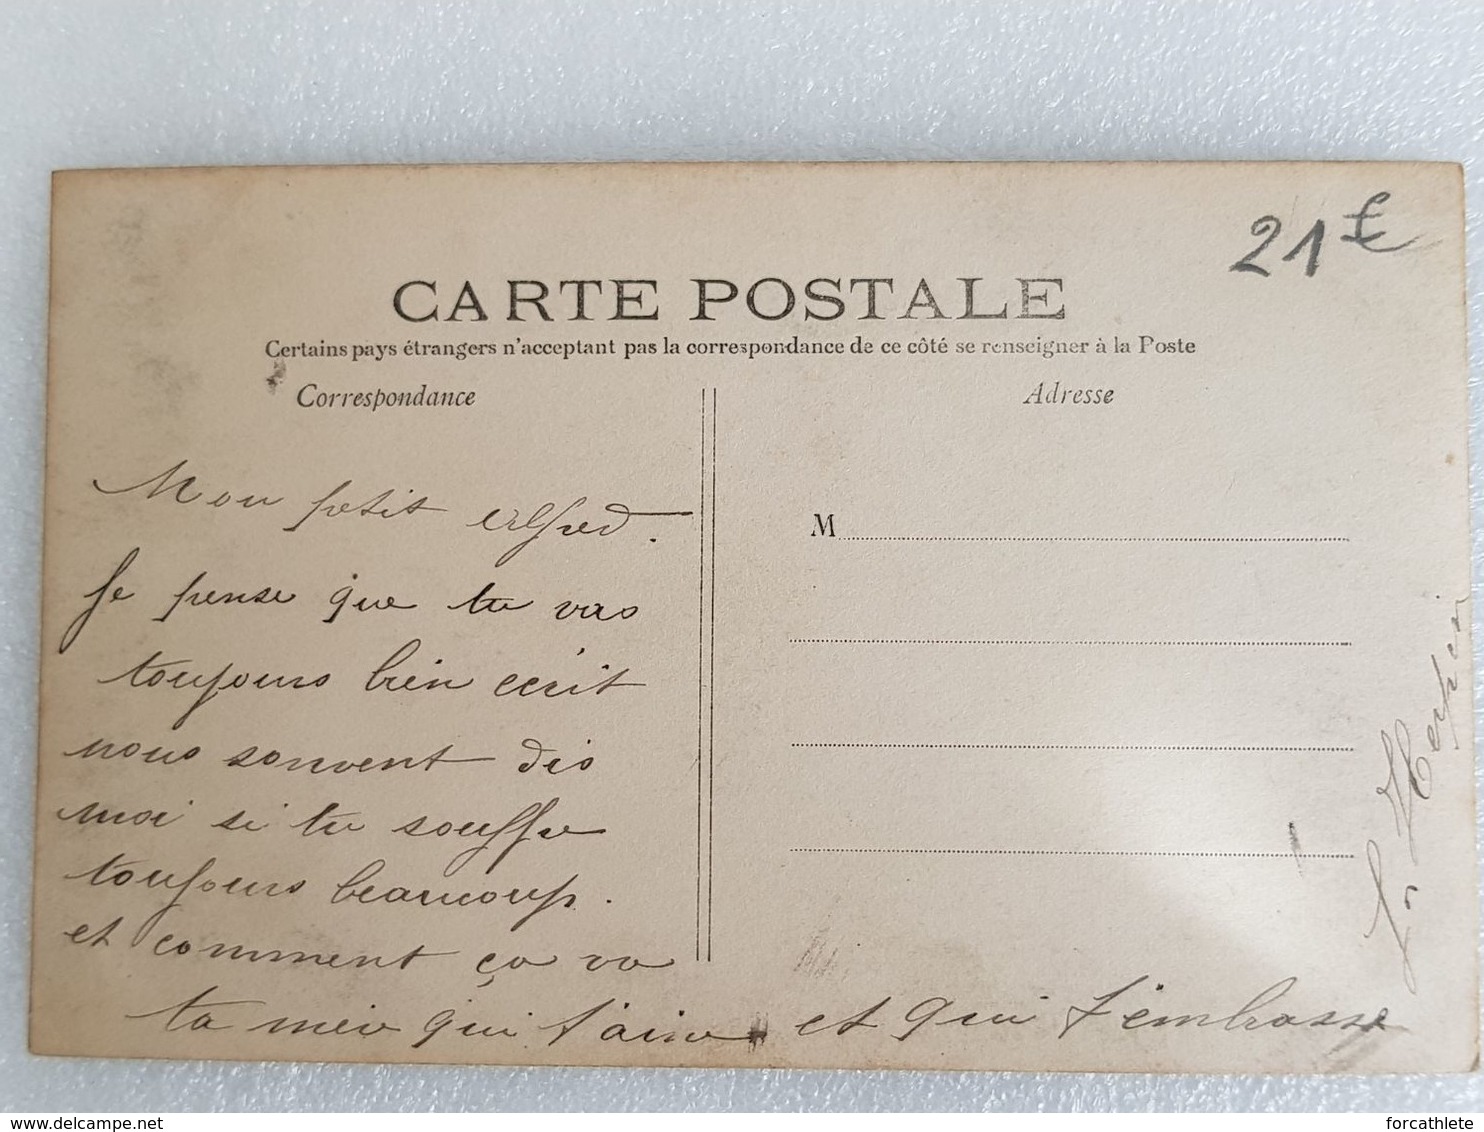 21 £
CARTE POSTALE
Certains pays étrangers n'acceptant pas la correspondance de ce côté se renseigner à la Poste
Correspondance
Adresse
M
Mon petit Alfred.
Je pense que tu vas
toujours bien écrit
nous souvent dis
moi si tu souffre
toujours beaucoup.
et comment ça va
ta mèr qui t'aime et qui t'embrasse
forcathlete